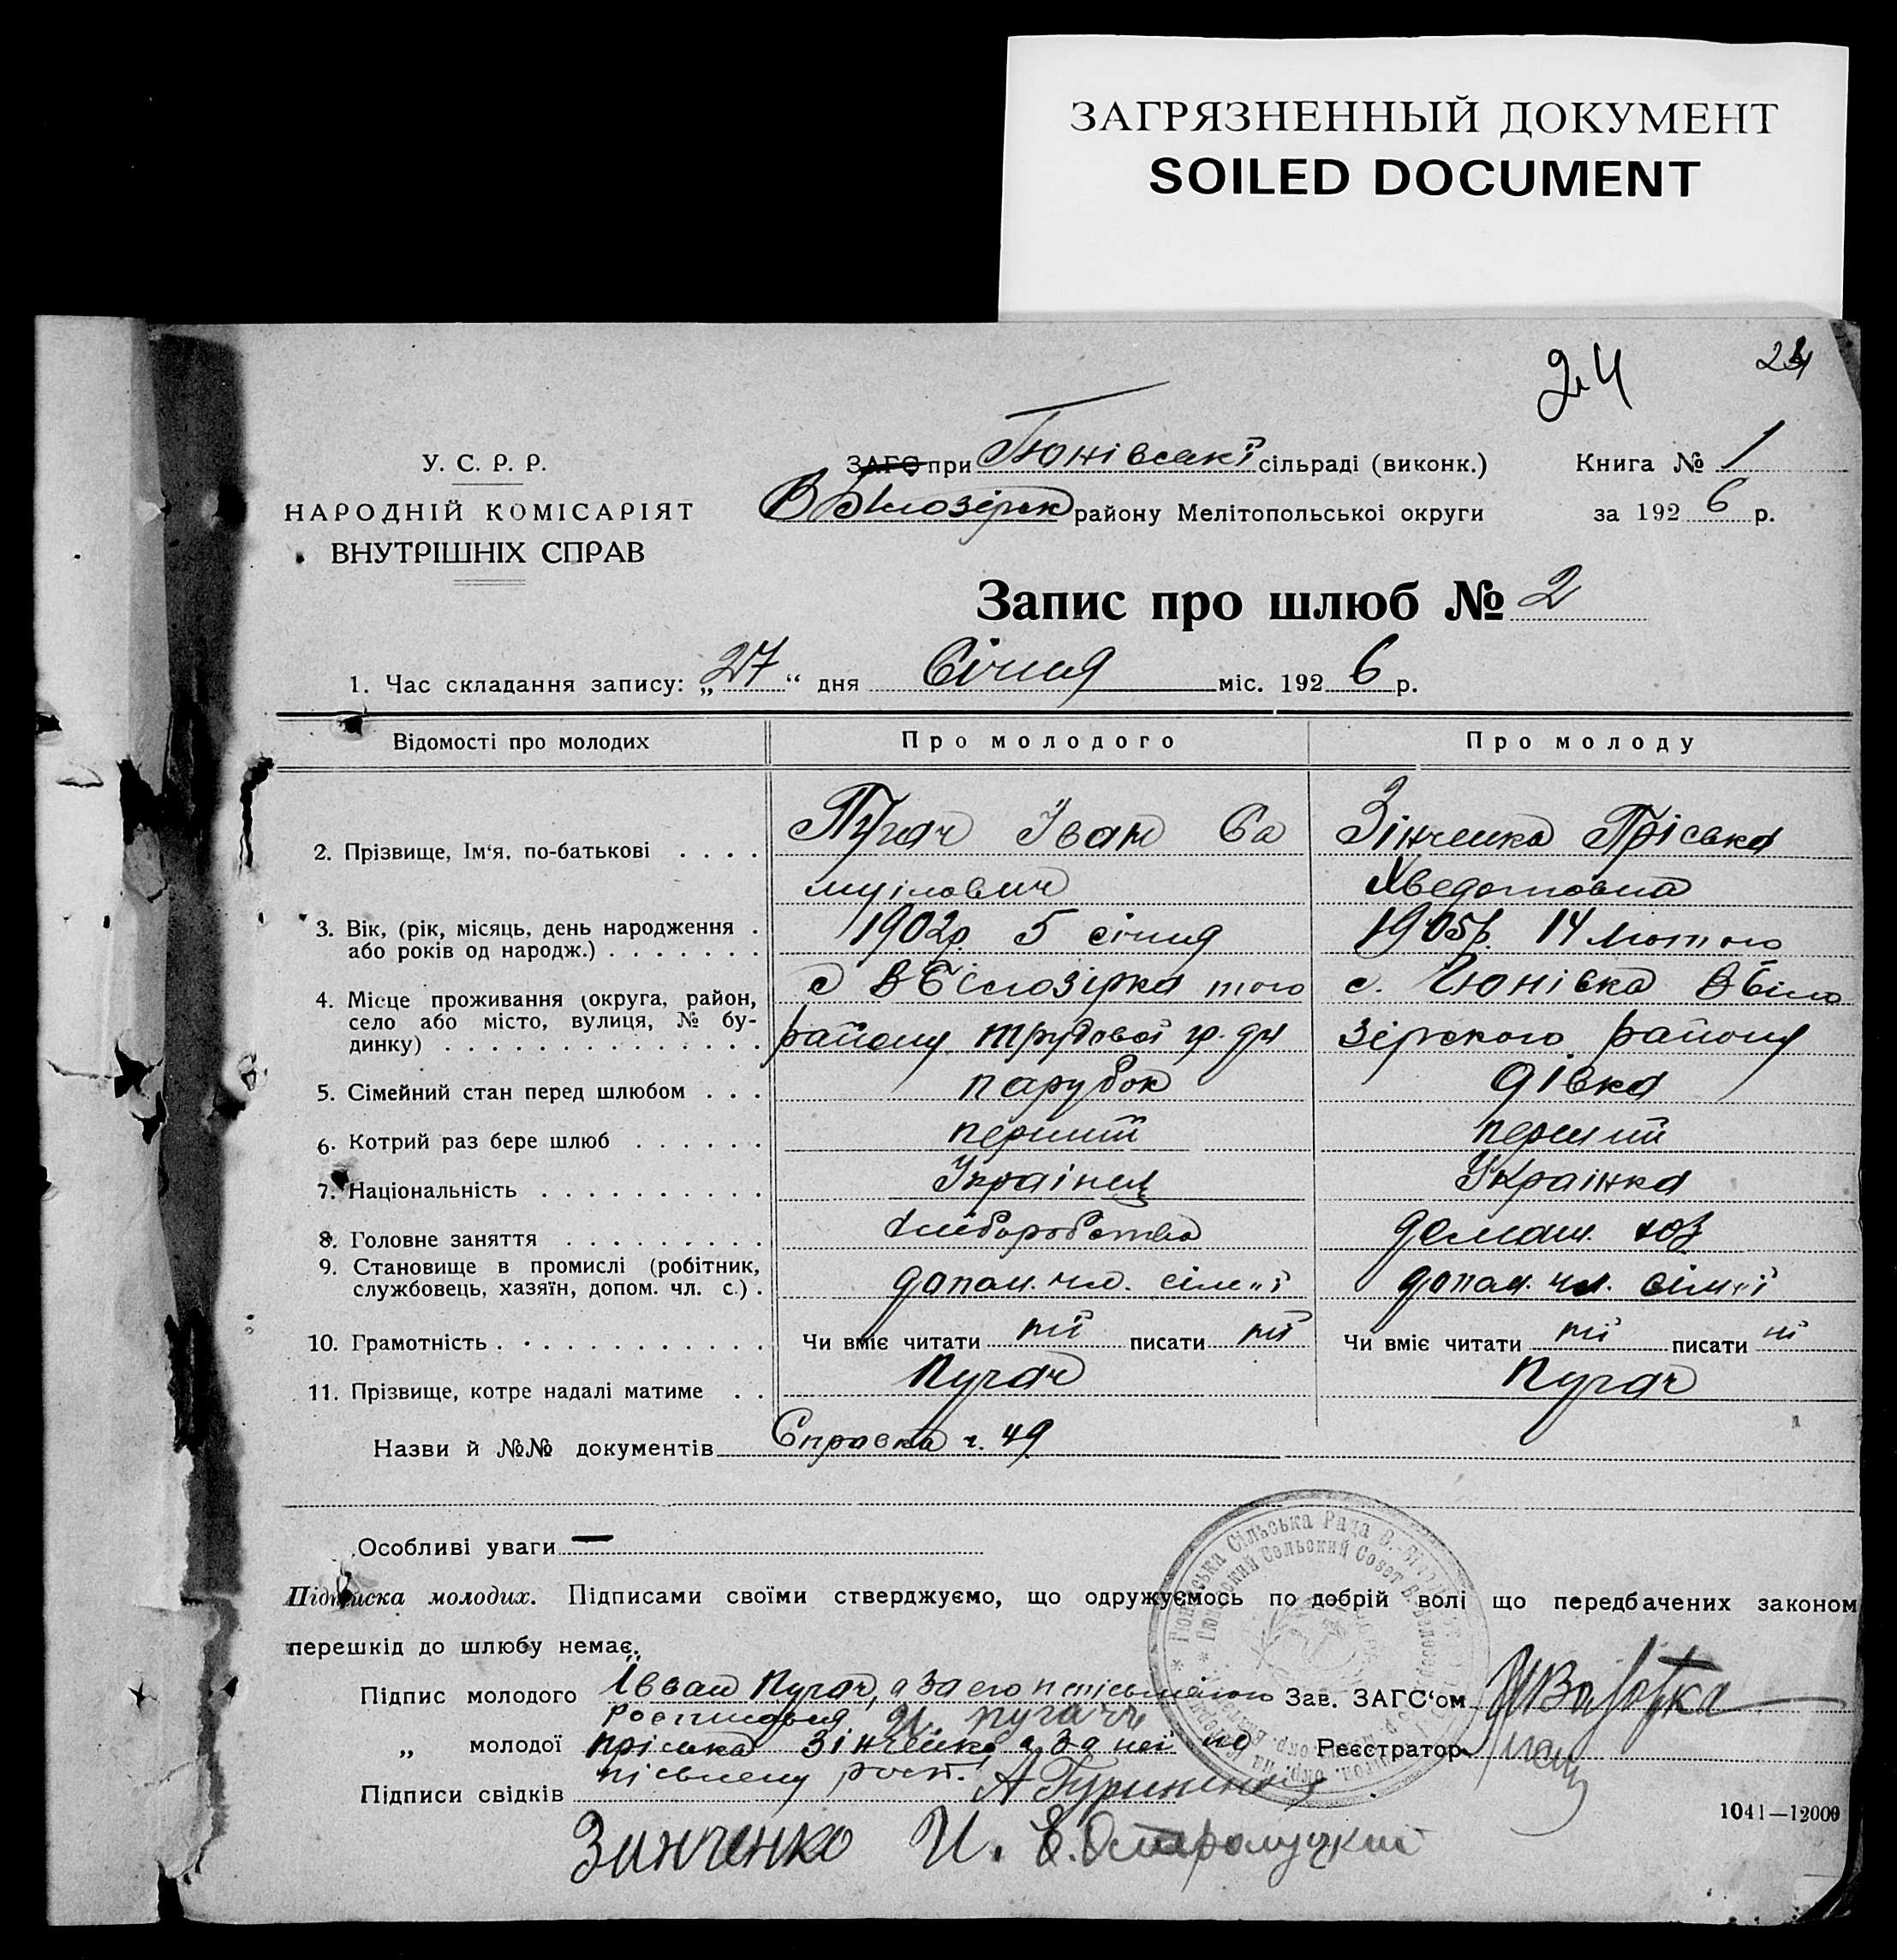 ЗАГРЯЗНЕННЫЙ ДОКУМЕНТ
SOILED DOCUMENT
24
24
У. С. Р. Р.
НАРОДНІЙ КОМІСАРІЯТ
ВНУТРІШНІХ СПРАВ
ЗАГС при Гюнівські сільраді (виконк.)
В Білозірск району Мелітопольської округи
Книга № 1
за 1926 р.
Запис про шлюб № 2
1. Час складання запису: „27“ дня Січня міс. 1926 р.
Відомості про молодих Про молодого Про молоду
2. Прізвище, Ім'я, по-батькові . . . . Пугач Іван Са Зінченко Пріська
муілович Хведотовна
3. Вік, (рік, місяць, день народження . 1902р. 5 січня 1905р. 14 Лютого
або років од народж.) . . . . . . .
4. Місце проживання (округа, район, с В Білозірка того с. Гюнівка В Біло
село або місто, вулиця, № бу-
динку) . . . . . . . . . . . . . . району трудової гр. зірского району
5. Сімейний стан перед шлюбом . . . парубок дівка
6. Котрий раз бере шлюб . . . . . . перший перший
7. Національність . . . . . . . . . . Українец Українка
8. Головне заняття . . . . . . . . . хліборобство домаш. хоз
9. Становище в промислі (робітник,
службовець, хазяїн, допом. чл. с.) . допом. чл. сім"ї допом. чл. сім"ї
10. Грамотність . . . . . . . . . . . . Чи вміє читати ні писати ні Чи вміє читати ні писати ні
11. Прізвище, котре надалі матиме . . Пугач Пугач
Назви й №№ документів Справка ч. 49
Особливі уваги —
Підписка молодих. Підписами своїми стверджуємо, що одружуємось по добрій волі що передбачених законом
перешкід до шлюбу немає.
Підпис молодого Івван Пугач, а за его неписьмен
И. пугач
Зав. ЗАГС‘ом
„ молодої пріська Зінченко а за неї не
Реєстратор
письмену росп.
Підписи свідків
1041—12000
Зинченко И.